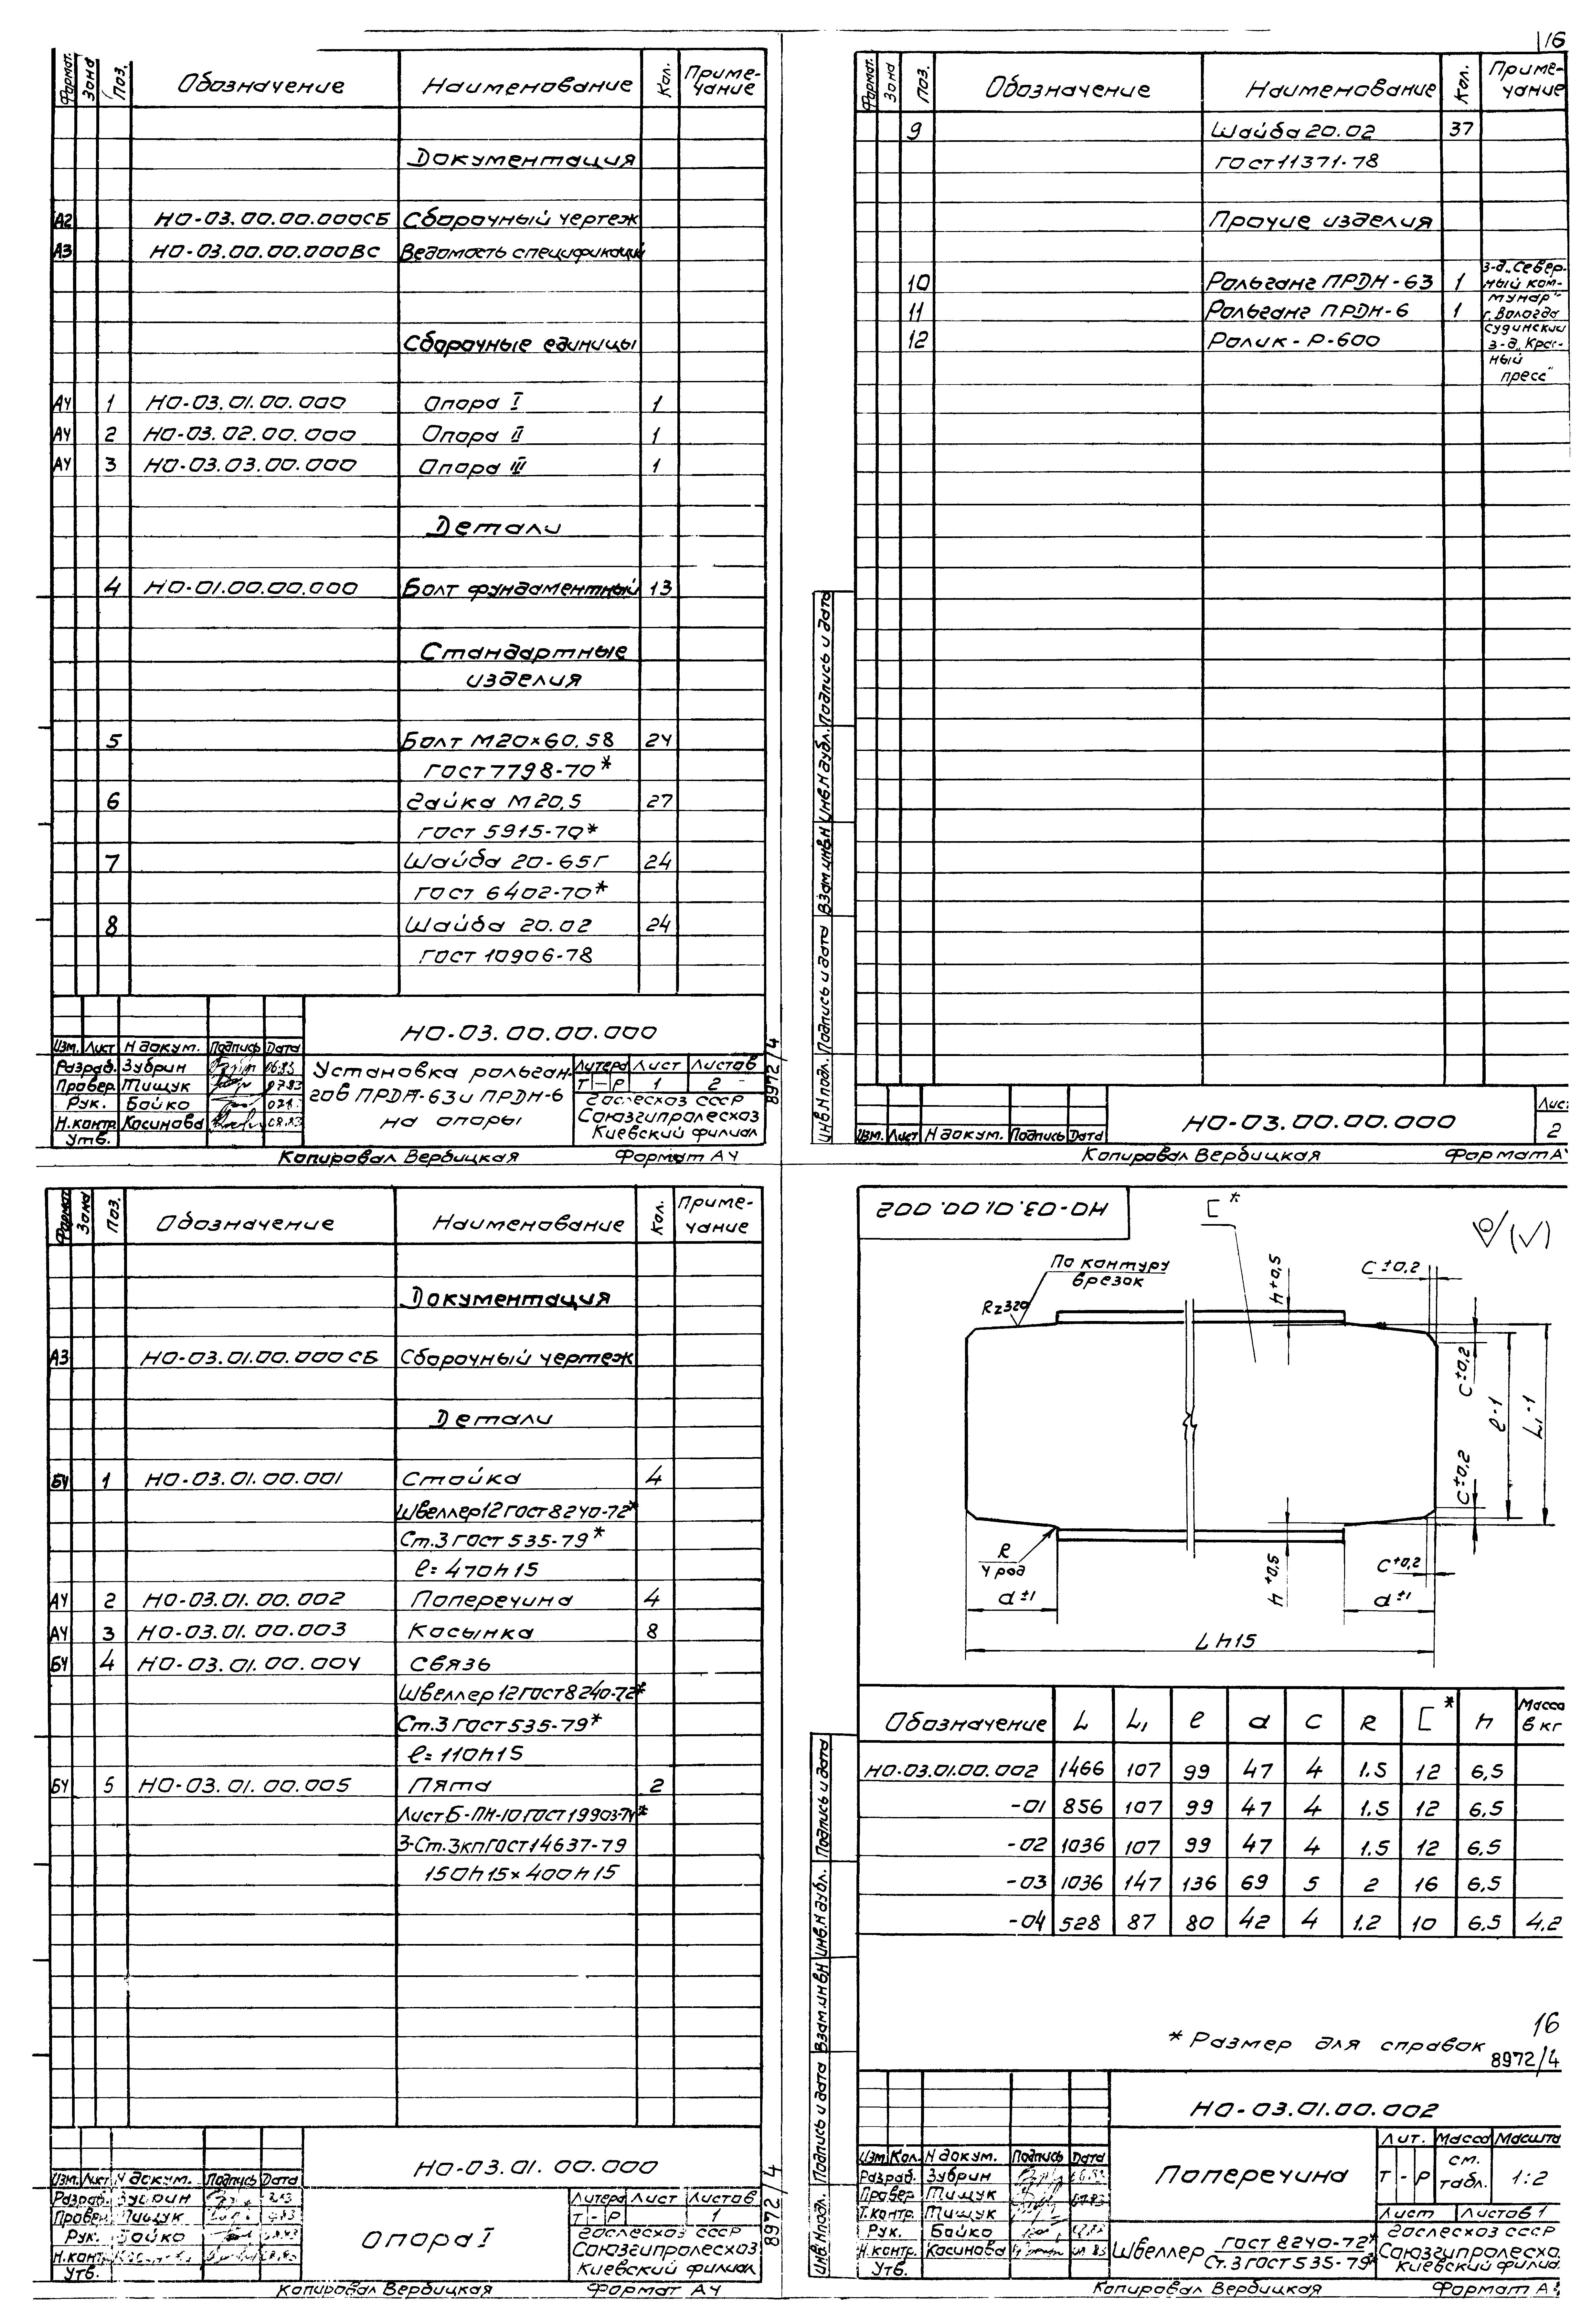 16
Формат. Зона Поз. Обозначение Наименование Кол. Приме-
чание
Документация
А2 НО-03.00.00.000СБ Сборочный чертеж
А3 НО-03.00.00.000ВС Ведомость спецификаций
Сборочные единицы
А4 1 НО-03.01.00.000 Опора I 1
А4 2 НО-03.02.00.000 Опора II 1
А4 3 НО-03.03.00.000 Опора III 1
Детали
4 НО-01.00.00.000 Болт фундаментный 13
Стандартные
изделия
5 Болт М20×60.58 24
ГОСТ 7798-70*
6 Гайка М20,5 27
ГОСТ 5915-70*
7 Шайба 20-65Г 24
ГОСТ 6402-70*
8 Шайба 20.02 24
ГОСТ 10906-78
НО-03.00.00.000
Изм. Лист N докум. Подпись Дата
Разраб. Зубрин 06.83
Провер. Тищук 07.83
Рук. Бойко
Н.контр. Касинова 08.83
Утв.
Установка рольган-
гов ПРДН-63 и ПРДН-6
на опоры
Литера Лист Листов
Т - Р 1 2
Гослесхоз СССР
Союзгипролесхоз
Киевский филиал
8972/4
Копировал Вербицкая Формат А4
Формат Зона Поз. Обозначение Наименование Кол. Приме-
чание
9 Шайба 20.02 37
ГОСТ 11371-78
Прочие изделия
10 Рольганг ПРДН-63 1
11 Рольганг ПРДН-6 1
12 Ролик-Р-600
з-д „Север-
ный ком-
мунар"
г. Вологда
Судинский
з-д „Крас-
ный
пресс"
Инв.N подл. Подпись и дата Взам.инв.N Инв.N дубл. Подпись и дата
Изм. Лист N докум. Подпись Дата
НО-03.00.00.000
Лис
2
Копировал Вербицкая Формат А
Формат Зона Поз. Обозначение Наименование Кол. Приме-
чание
Документация
А3 НО-03.01.00.000СБ Сборочный чертеж
Детали
БЧ 1 НО-03.01.00.001 Стойка 4
Швеллер 12 ГОСТ 8240-72*
Ст.3 ГОСТ 535-79*
ℓ=470h15
А4 2 НО-03.01.00.002 Поперечина 4
А4 3 НО-03.01.00.003 Косынка 8
БЧ 4 НО-03.01.00.004 Связь
Швеллер 12 ГОСТ 8240-72*
Ст.3 ГОСТ 535-79*
ℓ=110h15
БЧ 5 НО-03.01.00.005 Пята 2
Лист Б-ПН-10 ГОСТ 19903-74*
3-Ст.3кп ГОСТ 14637-79
150h15×400h15
НО-03.01.00.000
Изм. Лист N докум. Подпись Дата
Разраб. Зубрин
Провер. Тищук
Рук. Бойко
Н.контр.
Утв.
Опора I
Литера Лист Листов
Т - Р 1
Гослесхоз СССР
Союзгипролесхоз
Киевский филиал
8972/4
Копировал Вербицкая Формат А4
НО-03.01.00.002
[*
(√)
По контуру
врезок
Rz320
h+0,5
C±0,2
C±0,2
ℓ-1
L₁-1
C±0,2
R
4 рад
h+0,5
C+0,2
d±1
d±1
Lh15
Обозначение L L₁ ℓ d C R [* h Масса
в кг
НО-03.01.00.002 1466 107 99 47 4 1.5 12 6,5
-01 856 107 99 47 4 1.5 12 6,5
-02 1036 107 99 47 4 1.5 12 6,5
-03 1036 147 136 69 5 2 16 6,5
-04 528 87 80 42 4 1.2 10 6,5 4,2
* Размер для справок
16
8972/4
Инв.N подл. Подпись и дата Взам.инв.N Инв.N дубл. Подпись и дата
НО-03.01.00.002
Изм. Кол. N докум. Подпись Дата
Разраб. Зубрин
Провер Тищук 07.83
Т.контр. Тищук
Рук. Бойко
Н.контр. Касинова
Утв.
Поперечина
Лит. Масса Масшта
Т - Р см.
табл. 1:2
Лист Листов 1
Швеллер ГОСТ 8240-72*
Ст.3 ГОСТ 535-79*
Гослесхоз СССР
Союзгипролесхо
Киевский филиа
Копировал Вербицкая Формат А4